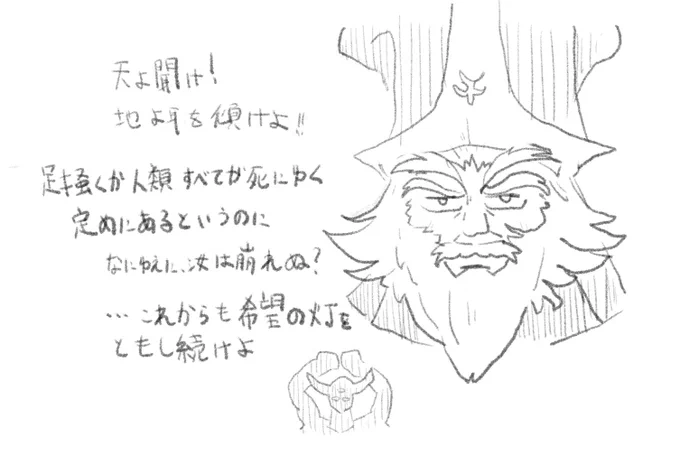 天よ聞け!
地よ耳を傾けよ!!
足掻くか人類すべてが死にゆく
定めにあるというのに
なにゆえに、汝は崩れぬ?
…これからも希望の灯を
ともし続けよ